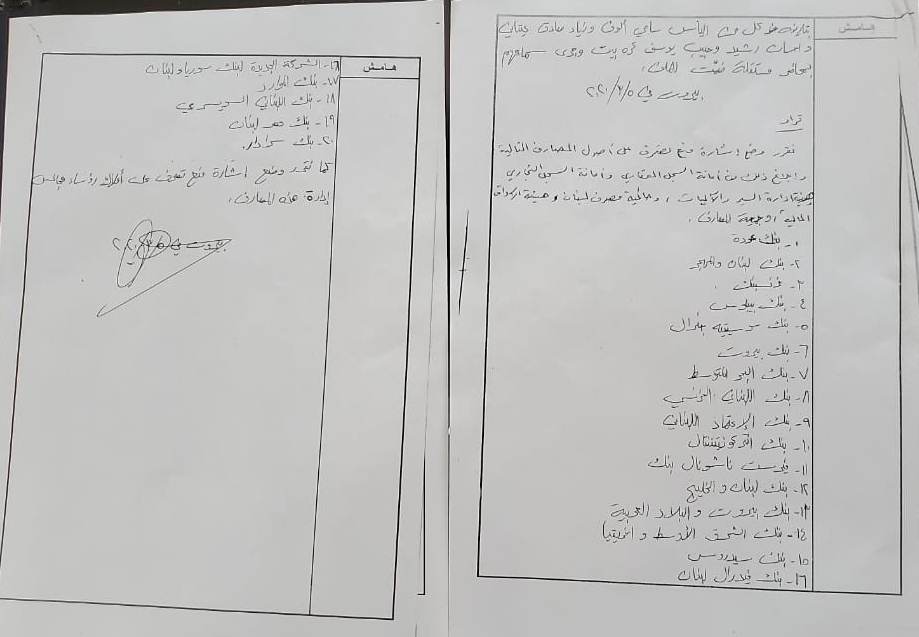 هامش
بتاريخه حضر كل من الياس ساحي ألوف وزياد صادق
واحسان رشيد وحبيب يوسف غزه بيت وجرى سماعهم
بمحاضر مستقلة ضمت للملف.
بيروت في ٢٠٢٠/٣/٥
قرار
نقرر وضع إشارة منع تصرف على أصول المصارف التالية
وابلاغ ذلك من أمانة السجل العقاري وأمانة السجل التجاري
وهيئة إدارة السير والآليات، وحاكمية مصرف لبنان وهيئة الأسواق
المالية وجمعية المصارف.
١- بنك عودة
٢- بنك لبنان والمهجر
٣- فرنسبنك
٤- بنك بيبلوس
٥- بنك سوسيته جنرال
٦- بنك بيروت
٧- بنك البحر المتوسط
٨- بنك اللبناني الفرنسي
٩- بنك الإعتماد اللبناني
١٠- بنك انتركونتيننتال
١١- فيرست ناشونال بنك
١٢- بنك لبنان والخليج
١٣- بنك بيروت والبلاد العربية
١٤- بنك الشرق الأوسط وافريقيا
١٥- بنك سيدروس
١٦- بنك فيدرال لبنان
هامش
١٦- الشركة الجديدة لبنك سوريا ولبنان
١٧- بنك الموارد
١٨- بنك اللبناني السويسري
١٩- بنك مصر لبنان
٢٠- بنك سرادار.
كما نقرر وضع إشارة منع تصرف على أملاك رؤساء مجالس
إدارة هذه المصارف.
بيروت في